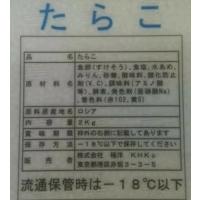 たらこ
品名 たらこ
原材料名 魚卵(すけそう)、食塩、水あめ、
みりん、砂糖、酸味料、酸化防止
剤(V.C)、調味料(アミノ酸
等)、酵素、発色剤(亜硝酸Na)
、着色料(赤102、黄5)
原料原産地名 ロシア
内容量 2Kg
賞味期限 枠外の右側に記載してあります
保存方法 -18℃以下で保存してください
販売者 株式会社
東京都港区
流通保管時は-18℃以下